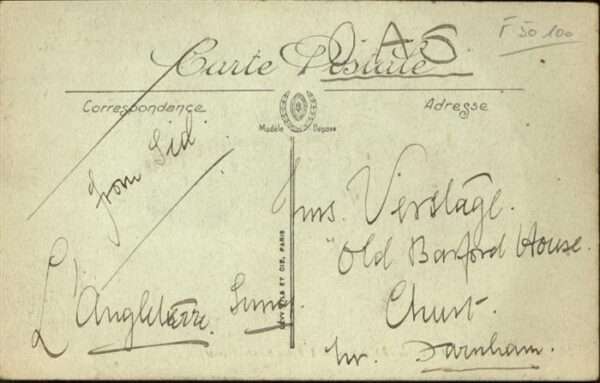 OAS
F 50 100
Carte Postale
Correspondance
Adresse
Modèle Déposé
from Sid.
Mrs. Verstage.
"Old Barford House.
Churt.
nr. Farnham.
L'Angleterre.
LÉVY FILS ET CIE, PARIS